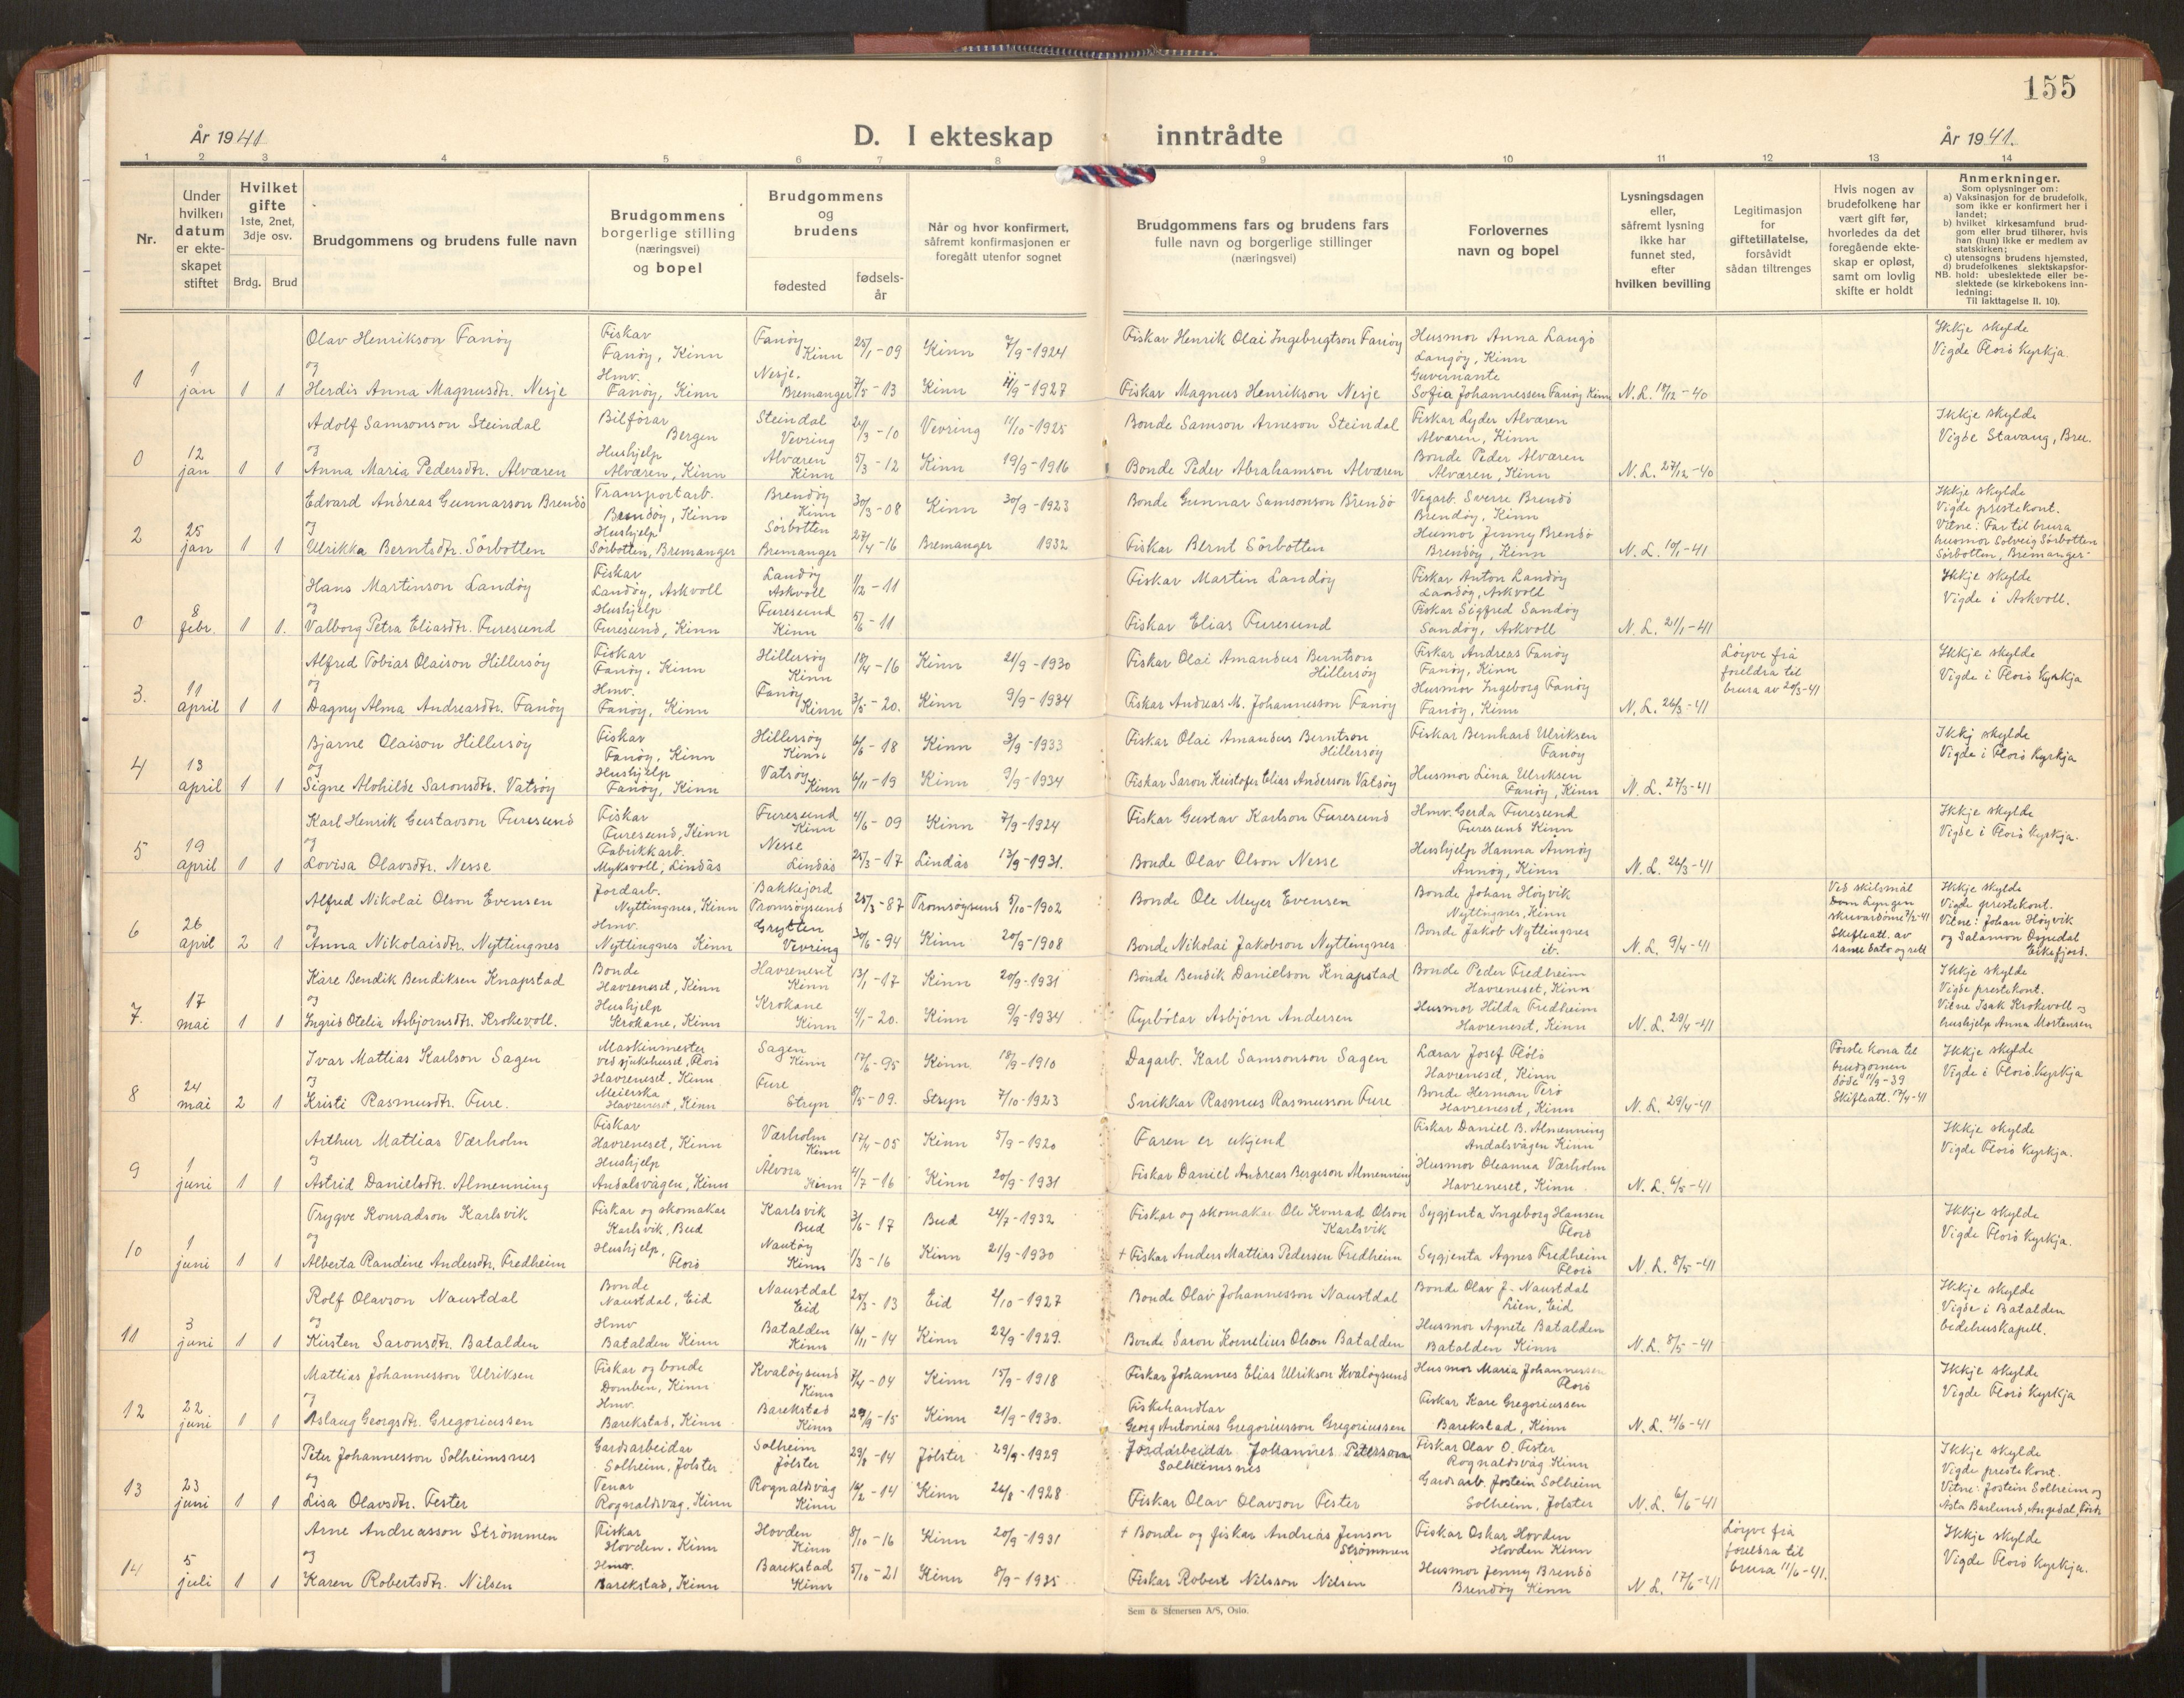 155
År 1941
D. I ekteskap inntrådte
År 1941.
1 2 3 4 5 6 7 8 9 10 11 12 13 14
Nr.
Under hvilken datum er ekteskapet stiftet
Hvilket gifte
1ste, 2net, 3dje osv.
Brdg. Brud
Brudgommens og brudens fulle navn
Brudgommens borgerlige stilling (næringsvei) og bopel
Brudgommens og brudens
fødested
fødsels-år
Når og hvor konfirmert, såfremt konfirmasjonen er foregått utenfor sognet
Brudgommens fars og brudens fars fulle navn og borgerlige stillinger (næringsvei)
Forlovernes navn og bopel
Lysningsdagen eller, såfremt lysning ikke har funnet sted, efter hvilken bevilling
Legitimasjon for giftetillatelse, forsåvidt sådan tiltrenges
Hvis nogen av brudefolkene har vært gift før, hvorledes da det foregående ekteskap er opløst, samt om lovlig skifte er holdt
Anmerkninger.
Som oplysninger om:
a) Vaksinasjon for de brudefolk, som ikke er konfirmert her i landet;
b) hvilket kirkesamfund brudgom eller brud tilhører, hvis han (hun) ikke er medlem av statskirken;
c) utensogns brudens hjemsted,
d) brudefolkenes slektskapsforhold: ubeslektede eller beslektede (se kirkebokens innledning:
NB.
Til iakttagelse II. 10).
Olav Henrikson Fanöy Fiskar Fanöy, Kinn Fanöy Kinn 25/1-09 Kinn 7/9-1924 Fiskar Henrik Olai Ingebrigtson Fanöy Husmor Anna Langö Langöy, Kinn Ikkje skylde Vigde Florö Kyrkja.
1 1 jan 1 1 og Herdis Anna Magnusdtr. Nesje Hmv. Fanöy, Kinn Nesje. Bremanger 7/5-13 Kinn 11/9-1927 Fiskar Magnus Henrikson Nesje Guvernante Sofia Johannessen Fanöy Kinn N.L. 18/12-40
Adolf Samsonson Steindal Bilförar Bergen Steindal Vevring 24/3-10 Vevring 11/10-1925 Bonde Samson Arneson Steindal Fiskar Lyder Alværen Alværen, Kinn Ikkje skylde Vigde Stavang, Bru.
0 12 jan 1 1 og Anna Maria Pedersdtr. Alværen Hushjelp Alværen, Kinn Alværen Kinn 5/3-12 Kinn 19/9-1916 Bonde Peder Abrahamson Alværen Bonde Peder Alværen Alværen, Kinn N.L. 27/12-40
Edvard Andreas Gunnarson Brendö Transportarb. Brendöy, Kinn Brendöy Kinn 30/3-08 Kinn 30/9-1923 Bonde Gunnar Samsonson Brendö Vegarb. Sverre Brendö Brendöy, Kinn Ikkje skylde Vigde prestekont. Vitne: Far til brura
2 25 jan 1 1 og Ulrikka Berntsdtr. Sörbotten Hushjelp Sörbotten, Bremanger Sörbotten Bremanger 27/4-16 Bremanger 1932 Fiskar Bernt Sörbotten Husmor Jenny Brendö Brendöy, Kinn N.L. 10/1-41 husmor Solveig Sörbotten Sörbotten, Bremanger-
Hans Martinson Landöy Fiskar Landöy, Askvoll Landöy Askvoll 1/12-11 Fiskar Martin Landöy Fiskar Anton Landöy Landöy, Askvoll Ikkje skylde Vigde i Askvoll.
0 8 febr. 1 1. og Valborg Petra Eliasdtr. Furesund Hushjelp Furesund, Kinn Furesund Kinn 5/6-11 Fiskar Elias Furesund Fiskar Sigfred Sandöy Sandöy, Askvoll N.L. 21/1-41
Alfred Tobias Olaison Hillersöy Fiskar Fanöy, Kinn Hillersöy Kinn 18/4-16 Kinn 21/9-1930 Fiskar Olai Amandus Berntson Hillersöy Fiskar Andreas Fanöy Fanöy, Kinn Löyve frå foreldra til brura av 20/3-41 Ikkje skylde Vigde i Florö Kyrkja
3. 11 april 1 1 og Dagny Alma Andreasdtr. Fanöy Hmv. Fanöy, Kinn Fanöy Kinn 3/5-20. Kinn 9/9-1934 Fiskar Andreas M. Johannesson Fanöy Husmor Ingeborg Fanöy Fanöy, Kinn N.L. 26/3-41
Bjarne Olaison Hillersöy Fiskar Fanöy, Kinn Hillersöy Kinn 6/6-18 Kinn 3/9-1933 Fiskar Olai Amandus Berntson Hillersöy Fiskar Bernhard Ulriksen Fanöy Ikkj skylde Vigde i Florö Kyrkja
4 13 april 1 1 og Signe Alvhilde Saronsdtr. Vatsöy Hushjelp Fanöy, Kinn Vatsöy Kinn 6/11-19 Kinn 9/9-1934 Fiskar Saron Kristofer Elias Anderson Vatsöy Husmor Lina Ulriksen Fanöy, Kinn N.L. 27/3-41
Karl Henrik Gustavson Furesund Fiskar Furesund, Kinn Furesund Kinn 4/6-09 Kinn 7/9-1924 Fiskar Gustav Karlson Furesund Hmv. Gerda Furesund Furesund Kinn Ikkje skylde Vigde i Florö Kyrkja.
5 19 april 1 1 og Lovisa Olavsdtr. Nesse Fabrikkarb. Myksvoll, Lindås Nesse Lindås 25/3-17 Lindås 13/9-1931. Bonde Olav Olson Nesse Hushjelp Hanna Annöy Annöy, Kinn N.L. 26/3-41
Alfred Nikolai Olson Evensen Jordarb. Nyttingnes, Kinn Bakkejord Tromsöysund 25/3-87 Tromsöysund 5/10-1902 Bonde Ole Meyer Evensen Bonde Johan Höyvik Nyttngnes, Kinn Ved skilsmål Dom Lyngen skrivardöme 7/2-41 Ikkje skylde Vigde prestekont. Vitne: Johan Höyvik
6 26 april 2 1 og Anna Nikolaisdtr. Nyttingnes Hmv. Nyttingnes Kinn Grytten Vevring 30/6-94 Kinn 20/9-1908 Bonde Nikolai Jakobson Nyttingnes Bonde Jakob Nyttingnes it. N.L. 9/4-41 Skifteatt. av same dato og rett og Salamon Osundal Eikefjord.
Kåre Bendik Bendiksen Knapstad Bonde Havreneset, Kinn Havreneset Kinn 13/1-17 Kinn 20/9-1931 Bonde Bendik Danielson Knapstad Bonde Peder Fredheim Havreneset, Kinn Ikkje skylde Vigde prestekont.
7. 17 mai 1 1 og Ingrid Otelia Asbjornsdtr. Krokevoll. Hushjelp Krokane, Kinn Krokane Kinn 4/1-20. Kinn 9/9-1934 Fyrbötar Asbjörn Andersen Husmor Hilda Fredheim Havreneset, Kinn N.L. 29/4-41 Vitne Isak Krokevoll og hushjelp Anna Mortensen
Ivar Mattias Karlson Sagen Maskinmester ved sjukehuset, Florö Havreneset, Kinn Sagen Kinn 17/6-95 Kinn 18/9-1910 Dagarb. Karl Samsonson Sagen Lærar Josef Flölö Havreneset, Kinn Förste kona til brudgomen döde 11/9-39 Ikkje skylde Vigde i Florö Kyrkja
8 24 mai 2 1 og Kristi Rasmusdtr. Fure. Meierska Havreneset, Kinn Fure Stryn 8/5-09. Stryn 7/10-1923 Snikkar Rasmus Rasmusson Fure Bonde Herman Terö Havreneset, Kinn N.L. 29/4-41 Skifteatt. 17/4-41
Arthur Mattias Værholm Fiskar Havreneset, Kinn Værholm Kinn 17/4-05 Kinn 5/9-1920 Faren er ukjend Fiskar Daniel B. Almenning Andalsvågen Kinn Ikkje skylde Vigde Florö Kyrkja.
9 1 juni 1 1 og Astrid Danielsdtr. Almenning Hushjelp Andalsvågen, Kinn Ålvora Kinn 4/7-16 Kinn 20/9-1931 Fiskar Daniel Andreas Bergeson Almenning Husmor Oleanna Værholm Havreneset, Kinn N.L. 6/5-41
Trygve Konradson Karlsvik Fiskar og skomakar Karlsvik, Bud Karlsvik Bud 3/6-17 Bud 24/7-1932 Fiskar og skomakar Ole Konrad Olson Karlsvik Sygjenta Ingeborg Hansen Florö Ikkje skylde Vigde Florö Kyrkja.
10 1 juni 1 1 og Alberta Randine Andersdtr. Fredheim Hushjelp, Florö Nautöy Kinn 1/3-16 Kinn 21/9-1930 + Fiskar Anders Mattias Pedersen Fredheim Sygjenta Agnes Fredheim Florö N.L. 8/5-41
Rolf Olavson Naustdal Bonde Naustdal, Eid Naustdal Eid 25/3-13 Eid 2/10-1927 Bonde Olav Johannesson Naustdal Bonde Olav J. Naustdal Lien, Eid Ikkje skylde Vigde i Batalden bedehuskapell.
11 3 juni 1 1 og Kirsten Saronsdtr. Batalden Hmv Batalden Kinn Batalden Kinn 16/11-14 Kinn 22/9-1929. Bonde Saron Kornelius Olson Batalden Husmor Agnete Batalden Batalden Kinn N.L. 8/5-41
Mattias Johannesson Ulriksen Fiskar og bonde Domben, Kinn Kvalöysund Kinn 7/4-04 Kinn 15/9-1918 Fiskar Johannes Elias Ulrikson Kvalöysund Husmor Maria Johannessen Florö Ikkje skylde Vigde Florö Kyrkja
12 22 juni 1 1 og Aslaug Georgsdtr. Gregoriussen Hmv. Barekstad, Kinn Barekstad Kinn 29/9-15 Kinn 21/9-1930. Fiskehandlar Georg Antonius Gregoriusson Gregoriussen Fiskar Kåre Gregoriussen Barekstad, Kinn N.L. 4/6-41
Peter Johannesson Solheimsnes Gardsarbeidar Solheim, Jolster Solheim Jölster 29/8-14 Jölster 29/9-1929 Jordarbeidar Johannes Peterson Solheimsnes Fiskar Olav O. Tester Rognaldsvåg Kinn Ikkje skylde Vigde prestekont.
13 23 juni 1 1 og Lisa Olavsdtr. Tester Tenar Rognaldsvåg, Kinn Rognaldsvåg Kinn 16/2-14 Kinn 26/8-1928 Fiskar Olav Olavson Tester Gardsarb. Jostein Solheim Solheim, Jolster N.L. 6/6-41 Vitne: Jostein Solheim og Asta Barlund, Angedal, Förde
Arne Andreasson Strömmen Fiskar Hovden, Kinn Hovden Kinn 8/10-16 Kinn 20/9-1931 + Bonde og fiskar Andreas Jenson Strömmen Fiskar Oskar Hovden Hovden Kinn Löyve frå foreldra til brura 11/6-41. Ikkje skylde Vigde Florö Kyrkja.
14 5 juli 1 1 og Karen Robertsdtr. Nilsen Hmv. Barekstad, Kinn Barekstad Kinn 5/10-21 Kinn 8/9-1935 Fiskar Robert Nilsson Nilsen Husmor Jenny Brendö Brendöy Kinn N.L. 17/6-41
Sem & Stenersen A/S, Oslo.